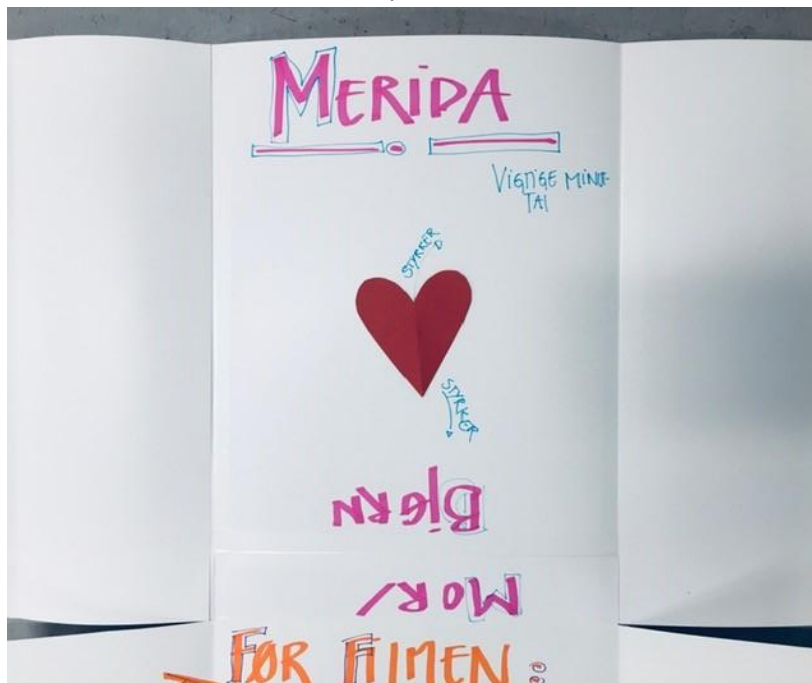 MERIDA
VIGTIGE MINUT-
TAL
STYRKER
STYRKER
MOR/
BJØRN
FØR FILMEN